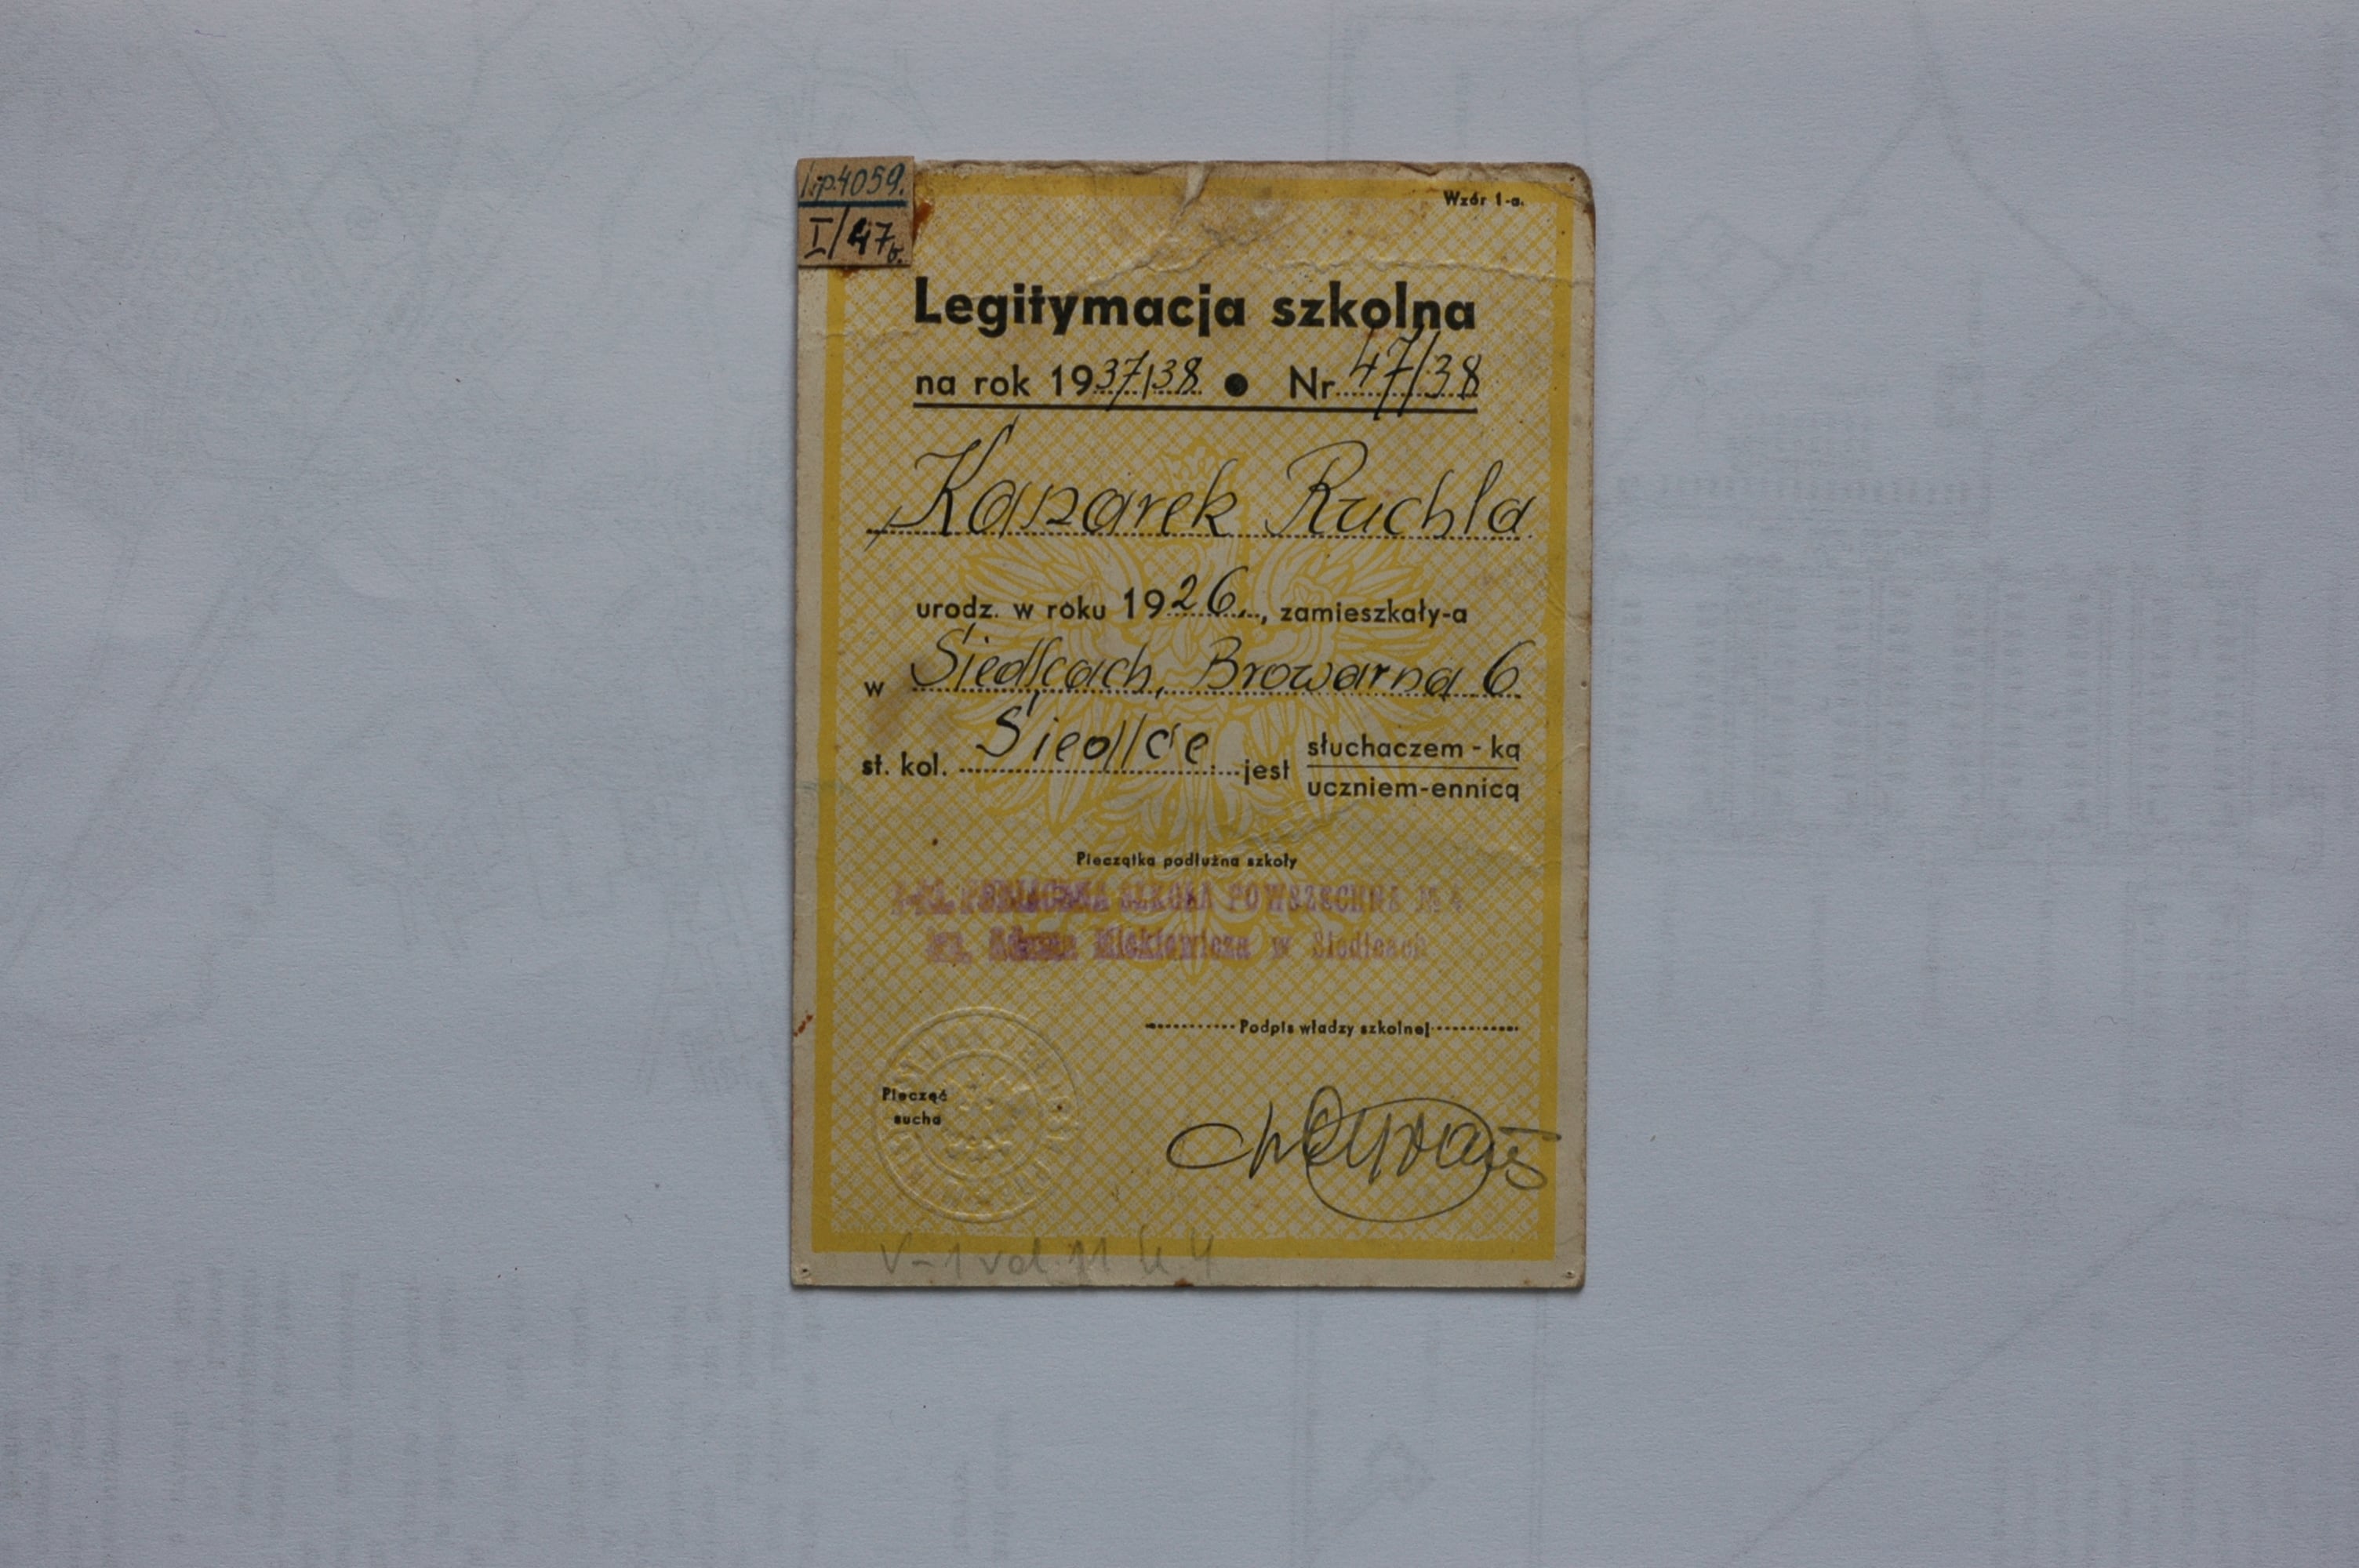 4059.
I/47
Wzór 1-a.
Legitymacja szkolna
na rok 1937/38 ● Nr 47/38
Kanarek Ruchla
urodz. w roku 1926, zamieszkały-a
w Siedlcach, Browarna 6
st. kol. Siedlce jest słuchaczem-ką
uczniem-ennicą
Pieczątka podłużna szkoły
PUBLICZNA SZKOŁA POWSZECHNA № 4
im. Adama Mickiewicza w Siedlcach
Podpis władzy szkolnej
Pieczęć
sucha
V-1 vol. 11 k 4